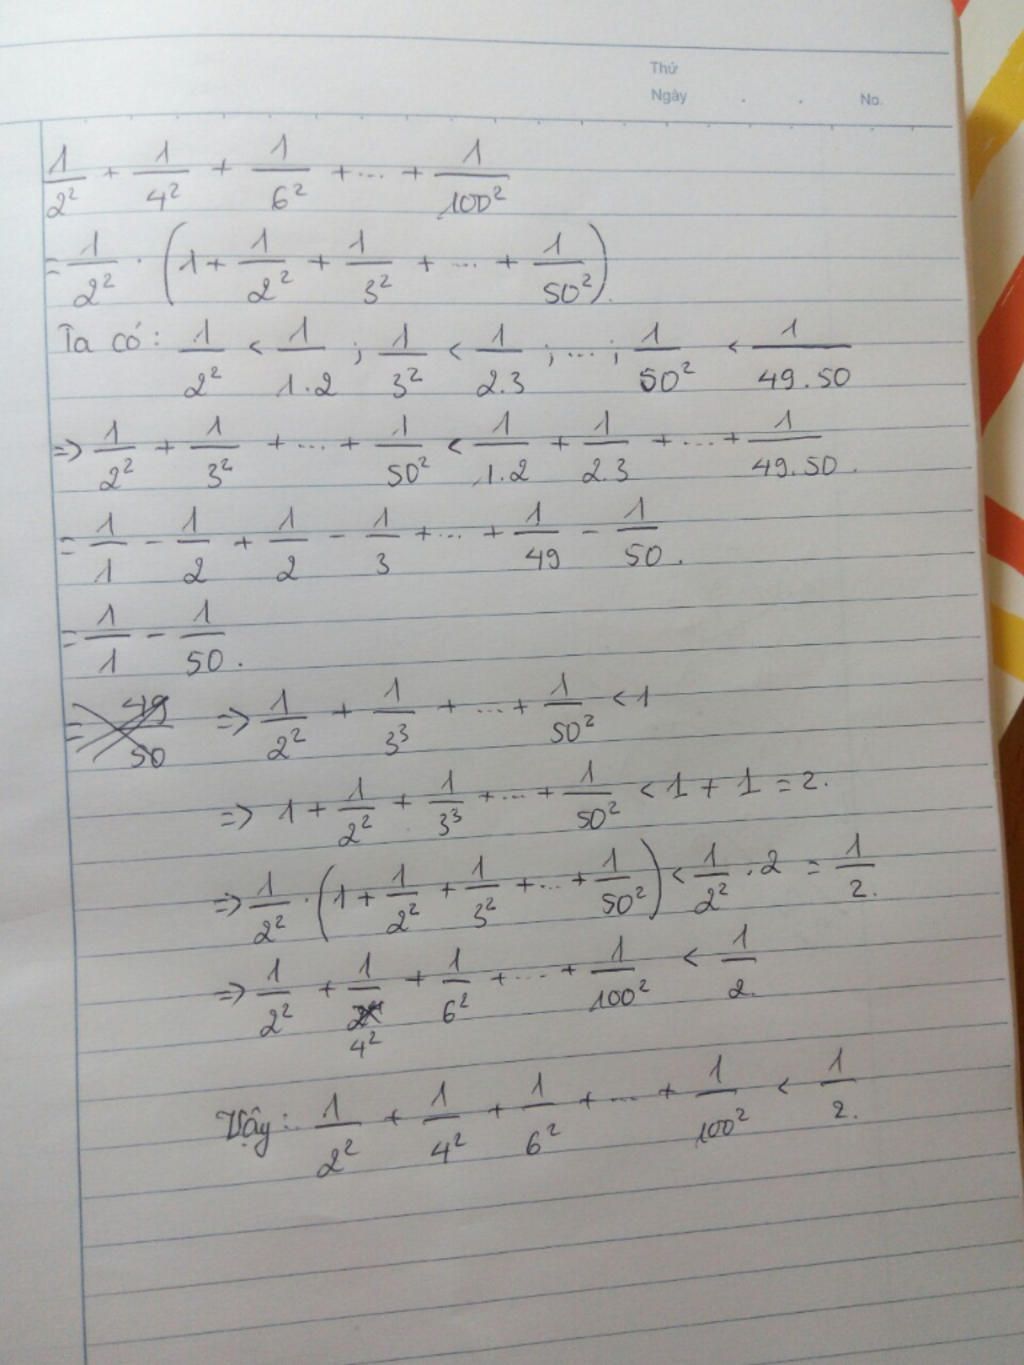 Thứ
Ngày . . No.
1/2² + 1/4² + 1/6² + ... + 1/100²
= 1/2² . (1 + 1/2² + 1/3² + ... + 1/50²).
Ta có: 1/2² < 1/1.2 ; 1/3² < 1/2.3 ; ... ; 1/50² < 1/49.50
=> 1/2² + 1/3² + ... + 1/50² < 1/1.2 + 1/2.3 + ... + 1/49.50.
= 1/1 - 1/2 + 1/2 - 1/3 + ... + 1/49 - 1/50.
= 1/1 - 1/50.
= 49/50 => 1/2² + 1/3³ + ... + 1/50² < 1
=> 1 + 1/2² + 1/3³ + ... + 1/50² < 1 + 1 = 2.
=> 1/2² . (1 + 1/2² + 1/3² + ... + 1/50²) < 1/2² . 2 = 1/2.
=> 1/2² + 1/4² + 1/6² + ... + 1/100² < 1/2.
Vậy: 1/2² + 1/4² + 1/6² + ... + 1/100² < 1/2.